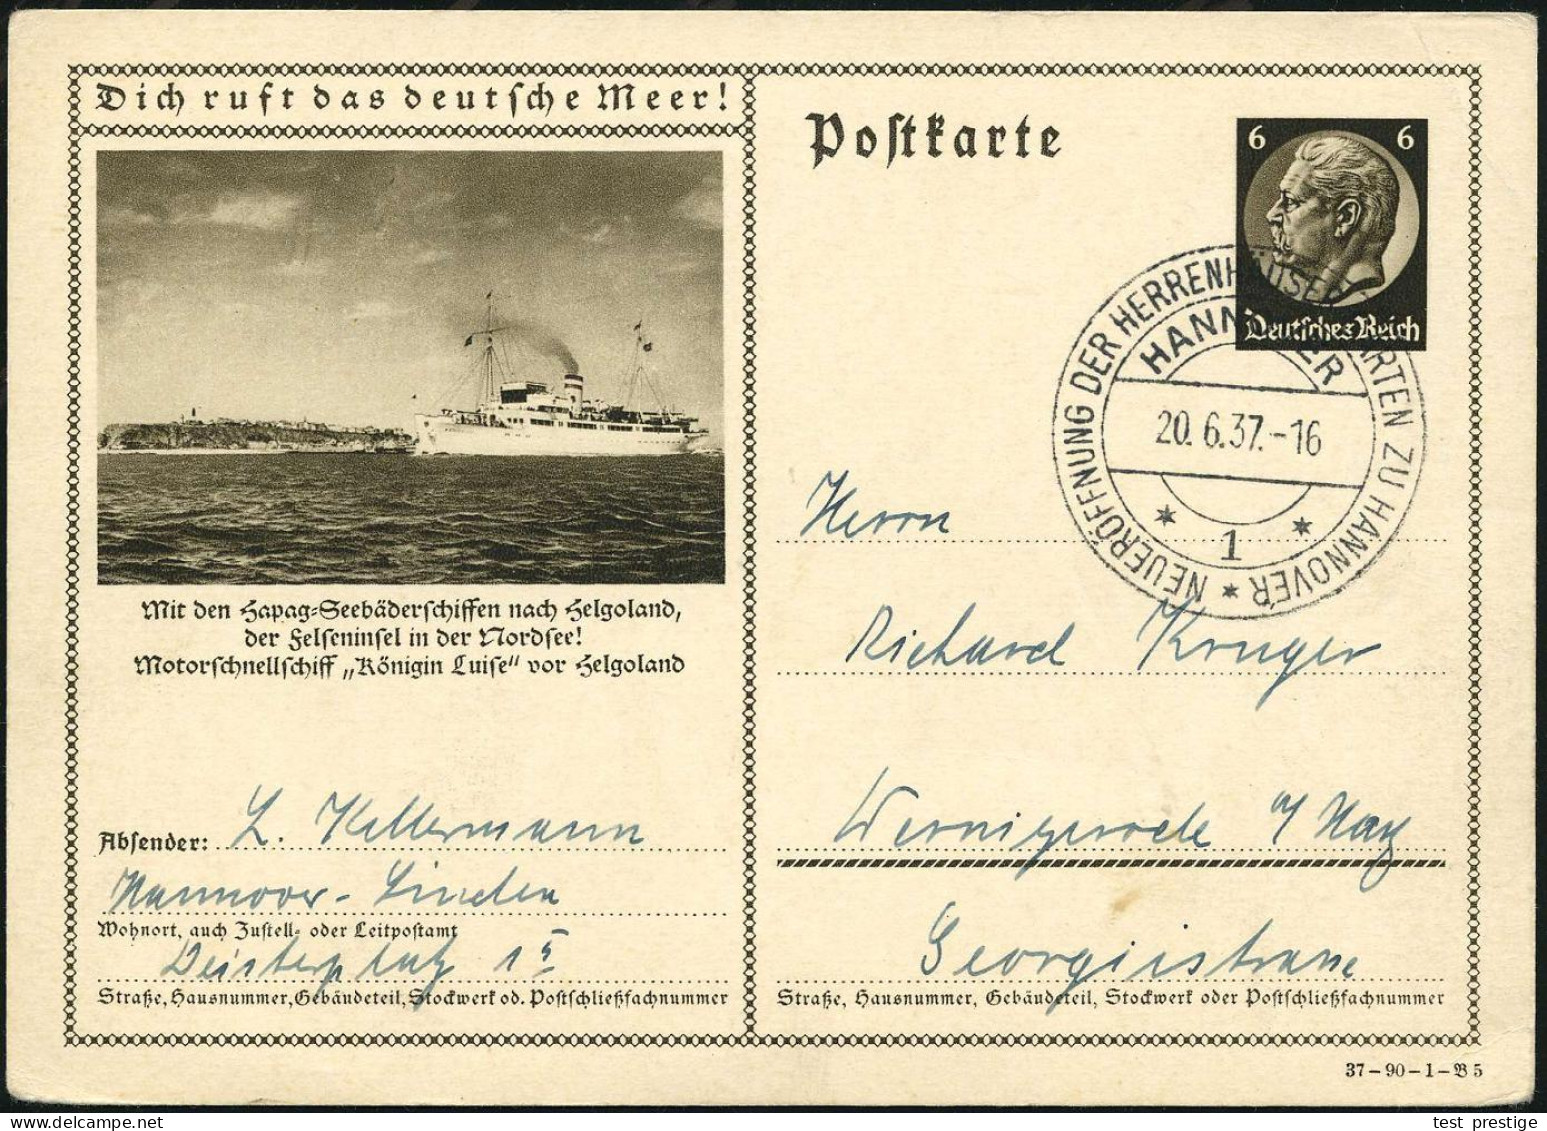 Dich ruft das deutsche Meer!
Mit den Hapag-Seebäderschiffen nach Helgoland,
der Felseninsel in der Nordsee!
Motorschnellschiff „Königin Luise" vor Helgoland
Absender: L. Kellermann
Hannover-Linden
Wohnort, auch Zustell- oder Leitpostamt
Deisterplatz 15
Straße, Hausnummer, Gebäudeteil, Stockwerk od. Postschließfachnummer
Postkarte
6 6
Deutsches Reich
NEUERÖFFNUNG DER HERRENHÄUSER GARTEN ZU HANNOVER *
HANNOVER
20.6.37.-16
* 1 *
Herrn
Richard Kruger
Wernigerode a/Harz
Georgiistrasse
Straße, Hausnummer, Gebäudeteil, Stockwerk oder Postschließfachnummer
37-90-1-B5
test_prestige